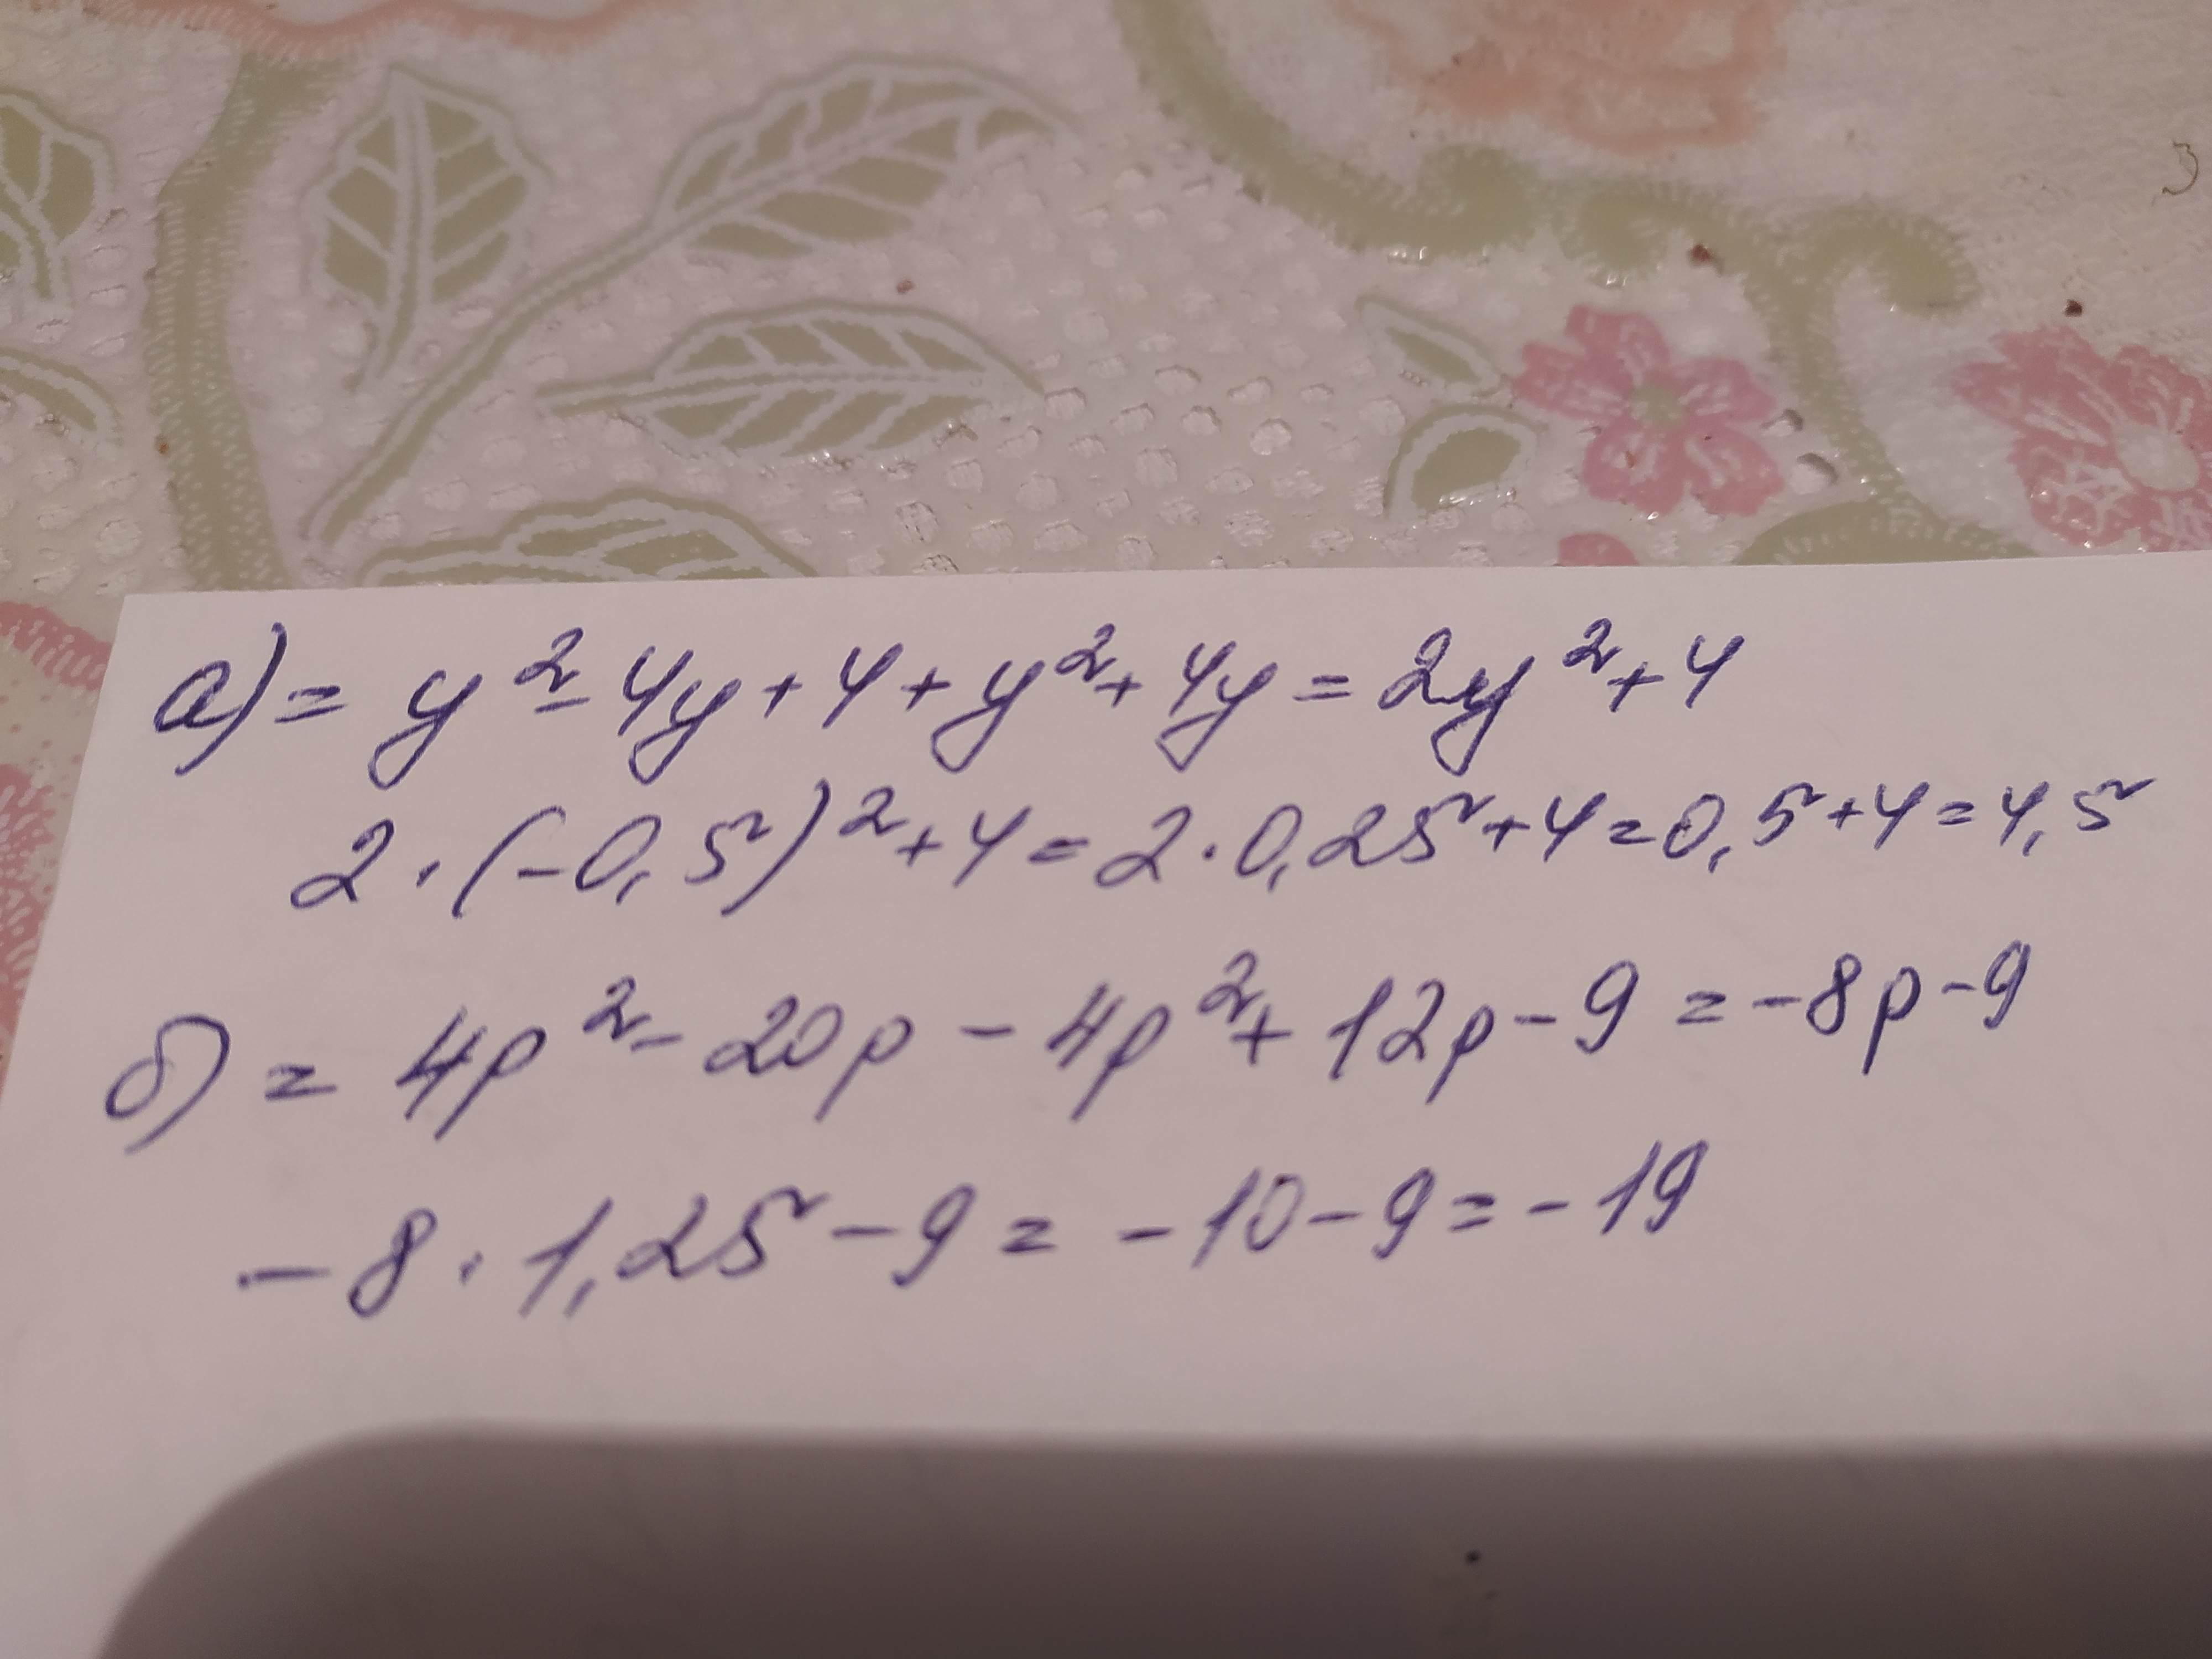 а) = y² - 4y + 4 + y² + 4y = 2y² + 4
2 · (-0,5)² + 4 = 2 · 0,25 + 4 = 0,5 + 4 = 4,5
б) = 4p² - 20p - 4p² + 12p - 9 = -8p - 9
-8 · 1,25 - 9 = -10 - 9 = -19